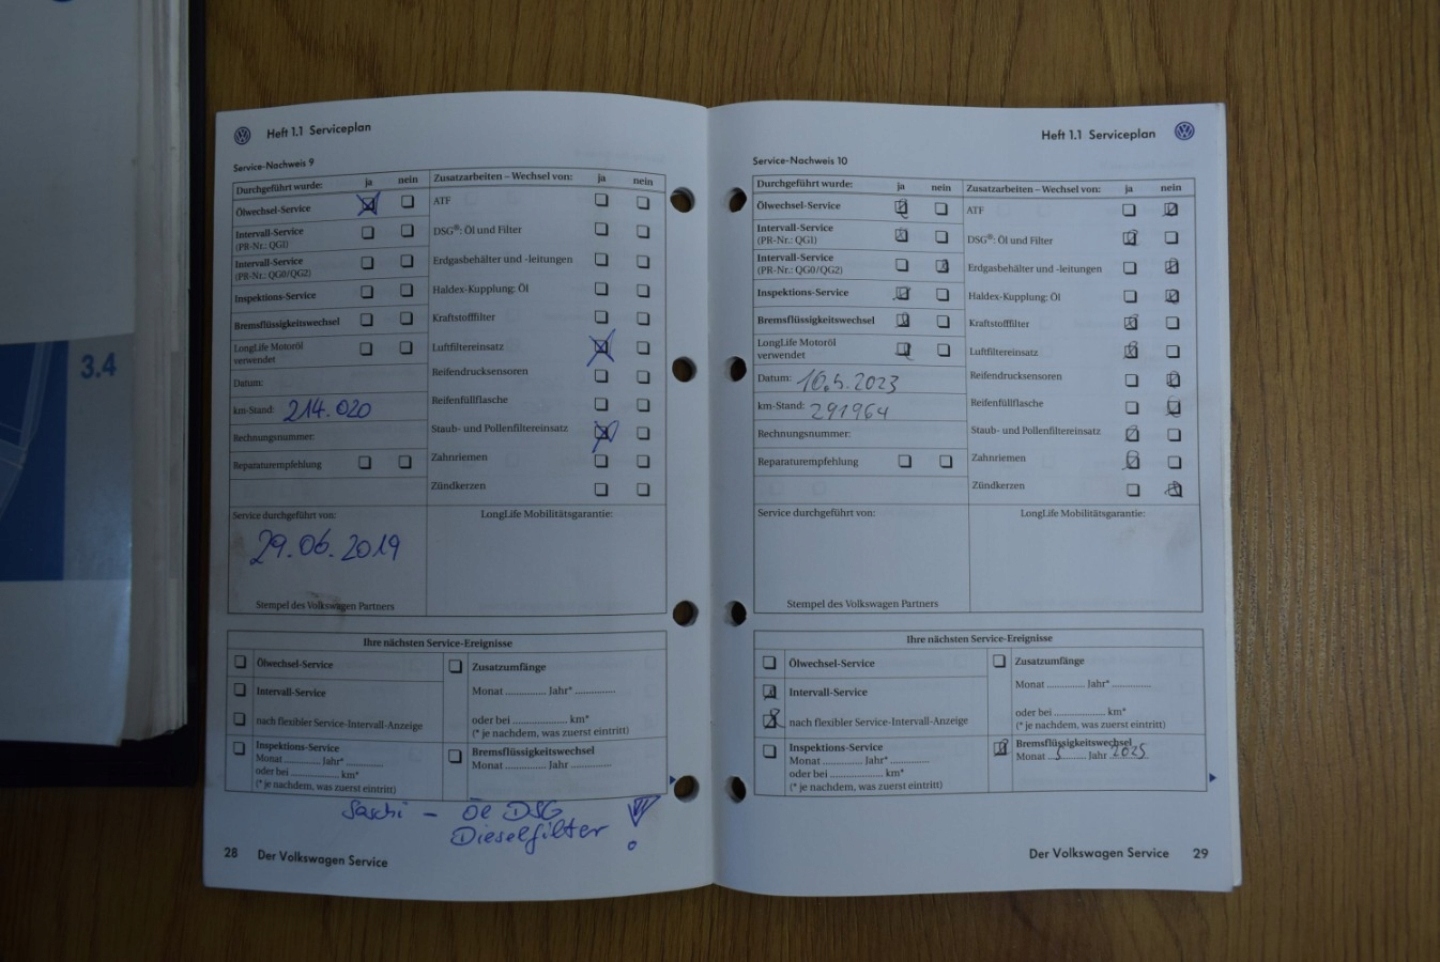 3.4
Heft 1.1 Serviceplan
Service-Nachweis 9
Durchgeführt wurde: ja nein
Ölwechsel-Service
Intervall-Service
(PR-Nr.: QG1)
Intervall-Service
(PR-Nr.: QG0/QG2)
Inspektions-Service
Bremsflüssigkeitswechsel
LongLife Motoröl
verwendet
Datum:
km-Stand: 214.020
Rechnungsnummer:
Reparaturempfehlung
Zusatzarbeiten – Wechsel von: ja nein
ATF
DSG®: Öl und Filter
Erdgasbehälter und -leitungen
Haldex-Kupplung: Öl
Kraftstofffilter
Luftfiltereinsatz
Reifendrucksensoren
Reifenfüllflasche
Staub- und Pollenfiltereinsatz
Zahnriemen
Zündkerzen
Service durchgeführt von:
29.06.2019
Stempel des Volkswagen Partners
LongLife Mobilitätsgarantie:
Ihre nächsten Service-Ereignisse
Ölwechsel-Service
Intervall-Service
nach flexibler Service-Intervall-Anzeige
Inspektions-Service
Monat ............ Jahr* ............
oder bei ............ km*
(* je nachdem, was zuerst eintritt)
Zusatzumfänge
Monat ............ Jahr* ............
oder bei ............ km*
(* je nachdem, was zuerst eintritt)
Bremsflüssigkeitswechsel
Monat ............ Jahr ............
Saschi – Öl DSG
Dieselfilter !
28 Der Volkswagen Service
Heft 1.1 Serviceplan
Service-Nachweis 10
Durchgeführt wurde: ja nein
Ölwechsel-Service
Intervall-Service
(PR-Nr.: QG1)
Intervall-Service
(PR-Nr.: QG0/QG2)
Inspektions-Service
Bremsflüssigkeitswechsel
LongLife Motoröl
verwendet
Datum: 10.5.2023
km-Stand: 291964
Rechnungsnummer:
Reparaturempfehlung
Zusatzarbeiten – Wechsel von: ja nein
ATF
DSG®: Öl und Filter
Erdgasbehälter und -leitungen
Haldex-Kupplung: Öl
Kraftstofffilter
Luftfiltereinsatz
Reifendrucksensoren
Reifenfüllflasche
Staub- und Pollenfiltereinsatz
Zahnriemen
Zündkerzen
Service durchgeführt von:
Stempel des Volkswagen Partners
LongLife Mobilitätsgarantie:
Ihre nächsten Service-Ereignisse
Ölwechsel-Service
Intervall-Service
nach flexibler Service-Intervall-Anzeige
Inspektions-Service
Monat ............ Jahr* ............
oder bei ............ km*
(* je nachdem, was zuerst eintritt)
Zusatzumfänge
Monat ............ Jahr* ............
oder bei ............ km*
(* je nachdem, was zuerst eintritt)
Bremsflüssigkeitswechsel
Monat 5 Jahr 2025
Der Volkswagen Service 29